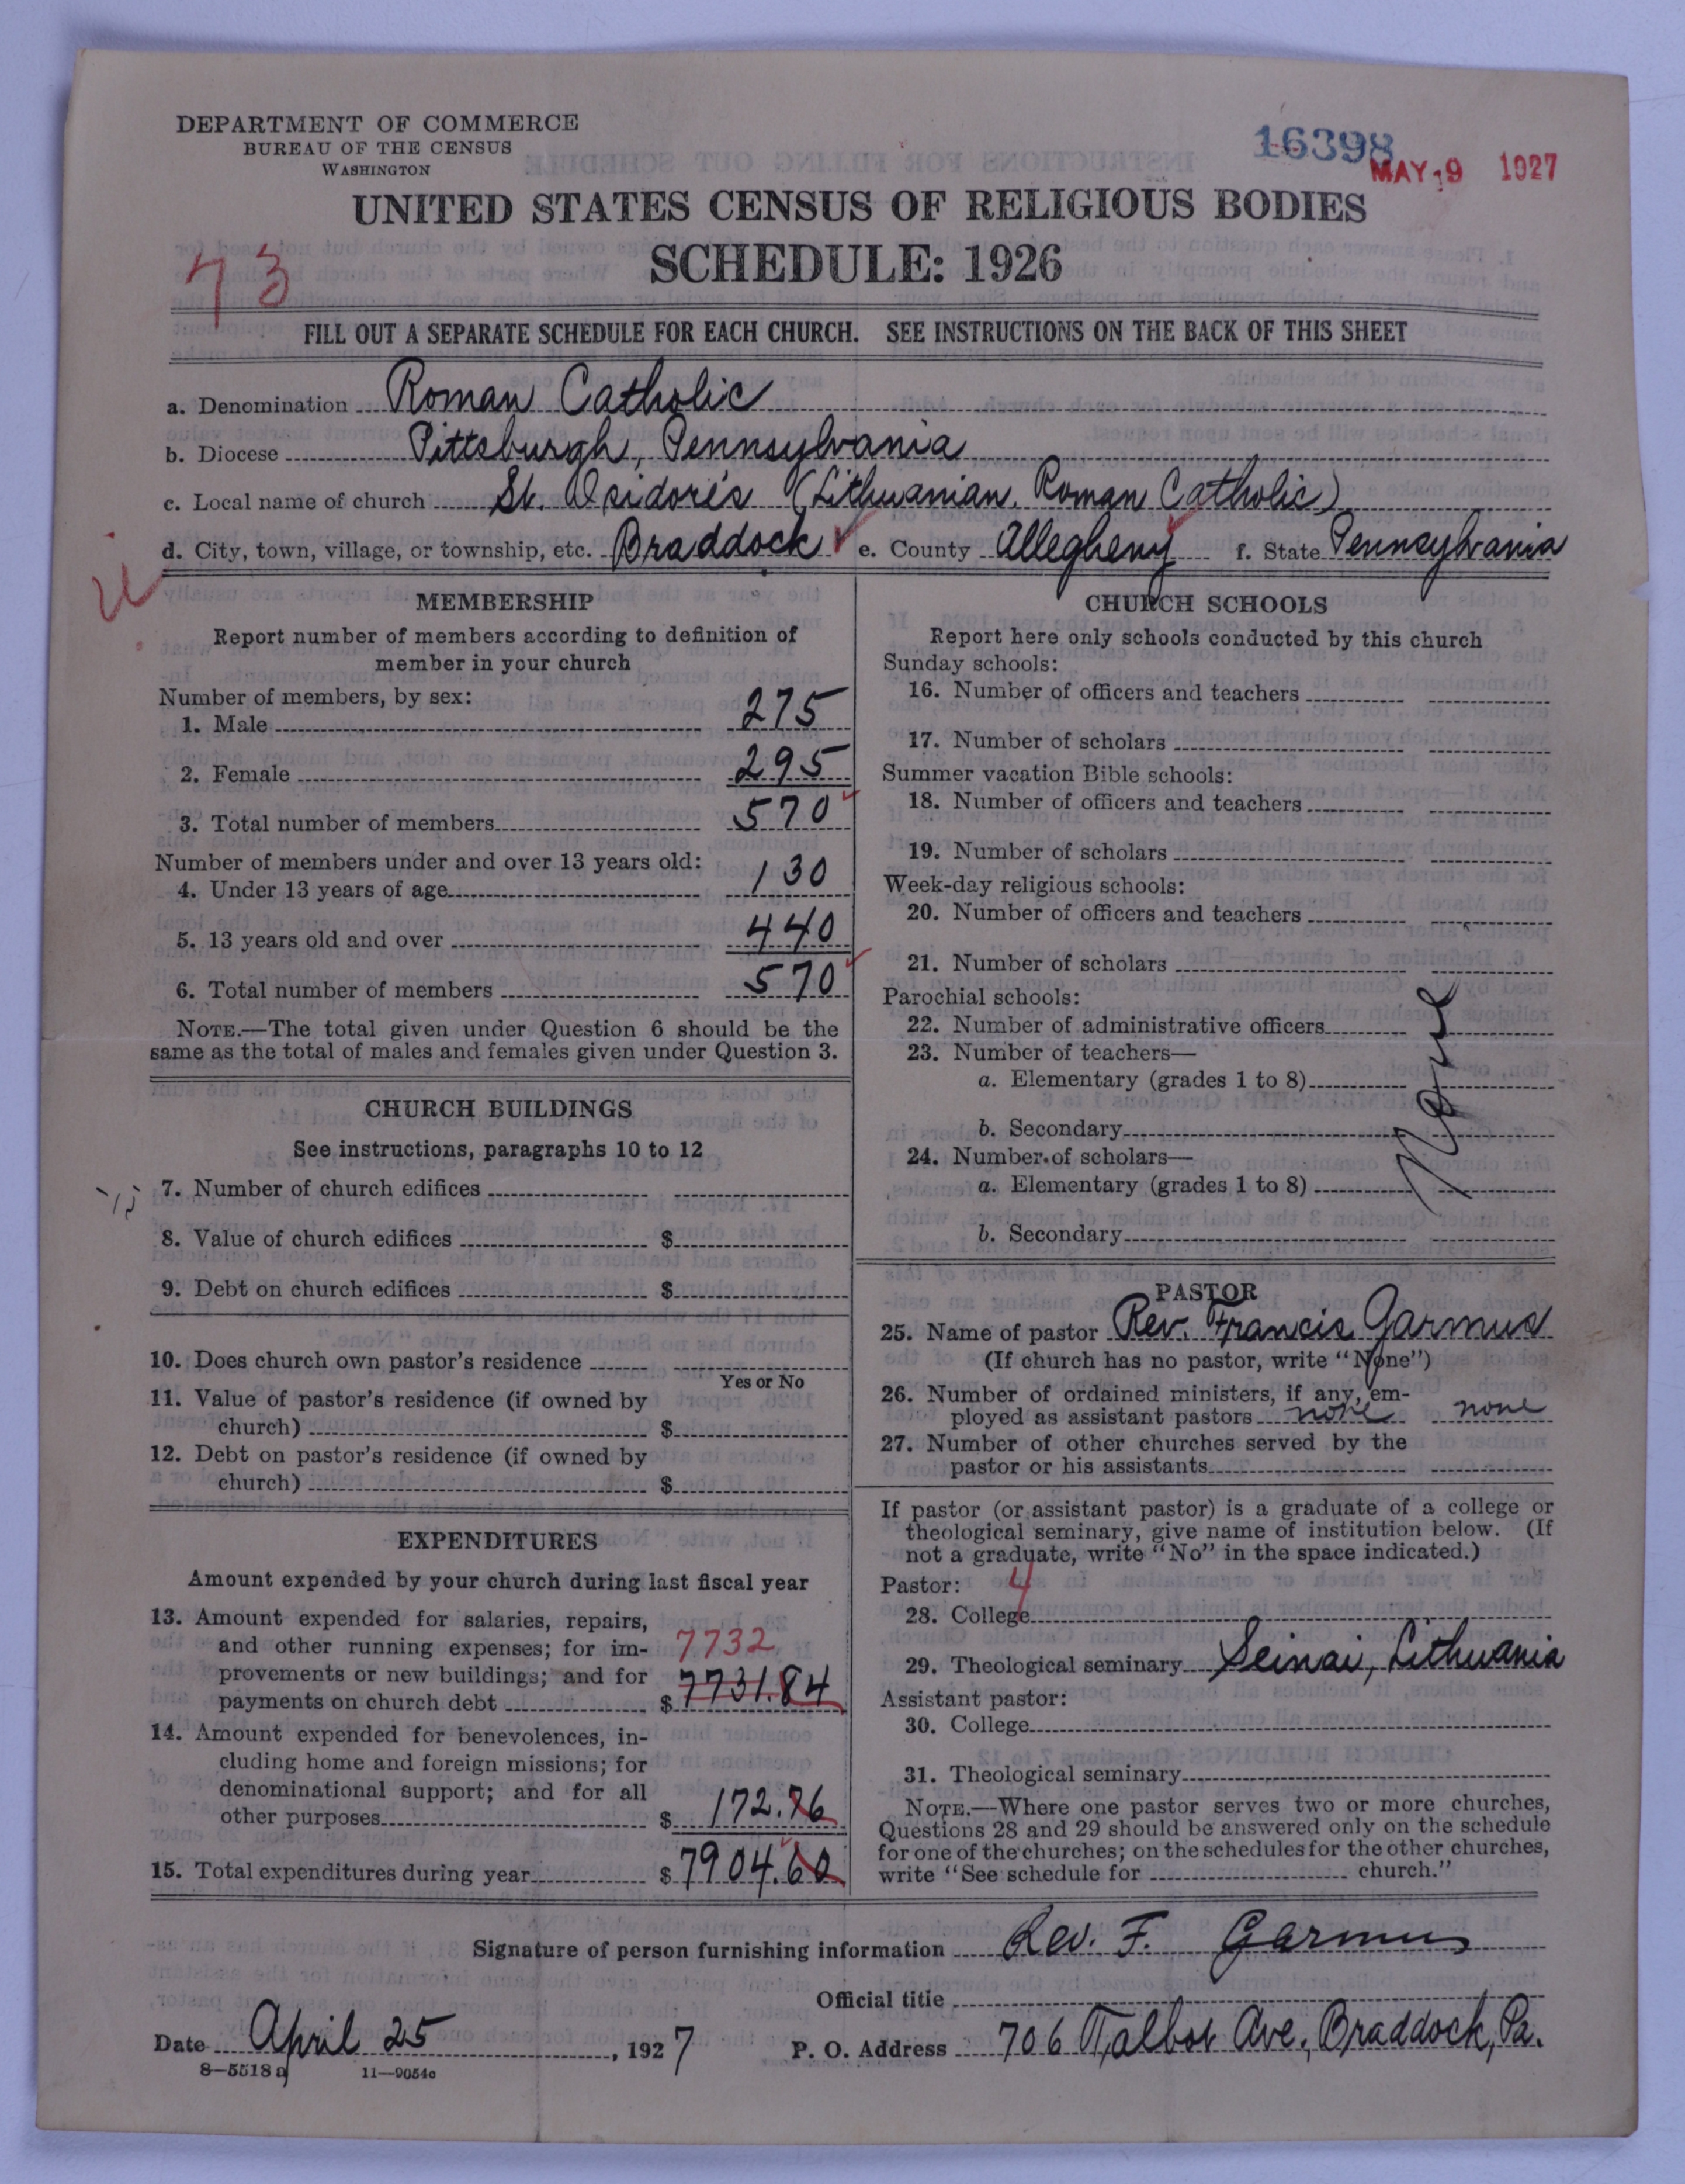 DEPARTMENT OF COMMERCE
BUREAU OF THE CENSUS
WASHINGTON
16398
MAY 9 1927
UNITED STATES CENSUS OF RELIGIOUS BODIES
SCHEDULE: 1926
73
FILL OUT A SEPARATE SCHEDULE FOR EACH CHURCH. SEE INSTRUCTIONS ON THE BACK OF THIS SHEET
a. Denomination Roman Catholic
b. Diocese Pittsburgh, Pennsylvania
c. Local name of church St. Isidore's (Lithuanian Roman Catholic)
d. City, town, village, or township, etc. Braddock e. County Allegheny f. State Pennsylvania
MEMBERSHIP
Report number of members according to definition of
member in your church
Number of members, by sex:
1. Male 275
2. Female 295
3. Total number of members 570
Number of members under and over 13 years old:
4. Under 13 years of age 130
5. 13 years old and over 440
6. Total number of members 570
NOTE.—The total given under Question 6 should be the
same as the total of males and females given under Question 3.
CHURCH BUILDINGS
See instructions, paragraphs 10 to 12
7. Number of church edifices
8. Value of church edifices $
9. Debt on church edifices $
10. Does church own pastor's residence
Yes or No
11. Value of pastor's residence (if owned by
church) $
12. Debt on pastor's residence (if owned by
church) $
EXPENDITURES
Amount expended by your church during last fiscal year
13. Amount expended for salaries, repairs,
and other running expenses; for im- 7732
provements or new buildings; and for
payments on church debt $ 7731.84
14. Amount expended for benevolences, in-
cluding home and foreign missions; for
denominational support; and for all
other purposes $ 172.76
15. Total expenditures during year $ 7904.60
CHURCH SCHOOLS
Report here only schools conducted by this church
Sunday schools:
16. Number of officers and teachers
17. Number of scholars
Summer vacation Bible schools:
18. Number of officers and teachers
19. Number of scholars
Week-day religious schools:
20. Number of officers and teachers
21. Number of scholars
Parochial schools:
22. Number of administrative officers
23. Number of teachers—
a. Elementary (grades 1 to 8)
b. Secondary
24. Number of scholars—
a. Elementary (grades 1 to 8)
b. Secondary
None
PASTOR
25. Name of pastor Rev. Francis Garmus
(If church has no pastor, write "None")
26. Number of ordained ministers, if any, em-
ployed as assistant pastors none none
27. Number of other churches served by the
pastor or his assistants
If pastor (or assistant pastor) is a graduate of a college or
theological seminary, give name of institution below. (If
not a graduate, write "No" in the space indicated.)
Pastor: 4
28. College
29. Theological seminary Seinai, Lithuania
Assistant pastor:
30. College
31. Theological seminary
NOTE.—Where one pastor serves two or more churches,
Questions 28 and 29 should be answered only on the schedule
for one of the churches; on the schedules for the other churches,
write "See schedule for church."
Signature of person furnishing information Rev. F. Garmus
Official title
Date April 25, 1927 P. O. Address 706 Talbot Ave., Braddock, Pa.
8—5518 a 11—9054c